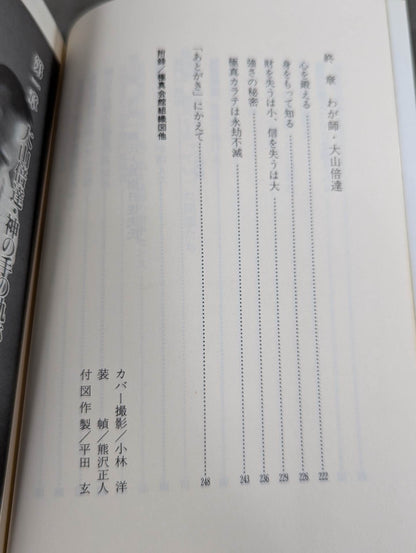 終章 わが師・大山倍達
心を鍛える……222
身をもって知る……226
財を失うは小、信を失うは大……229
強さの秘密……236
極真カラテは永劫不滅……243
「あとがき」にかえて……248
附録/極真会館組織図他
カバー撮影/小林 洋
装幀/熊沢正人
付図作製/平田 玄
第一章 大山倍達・神の手の軌跡